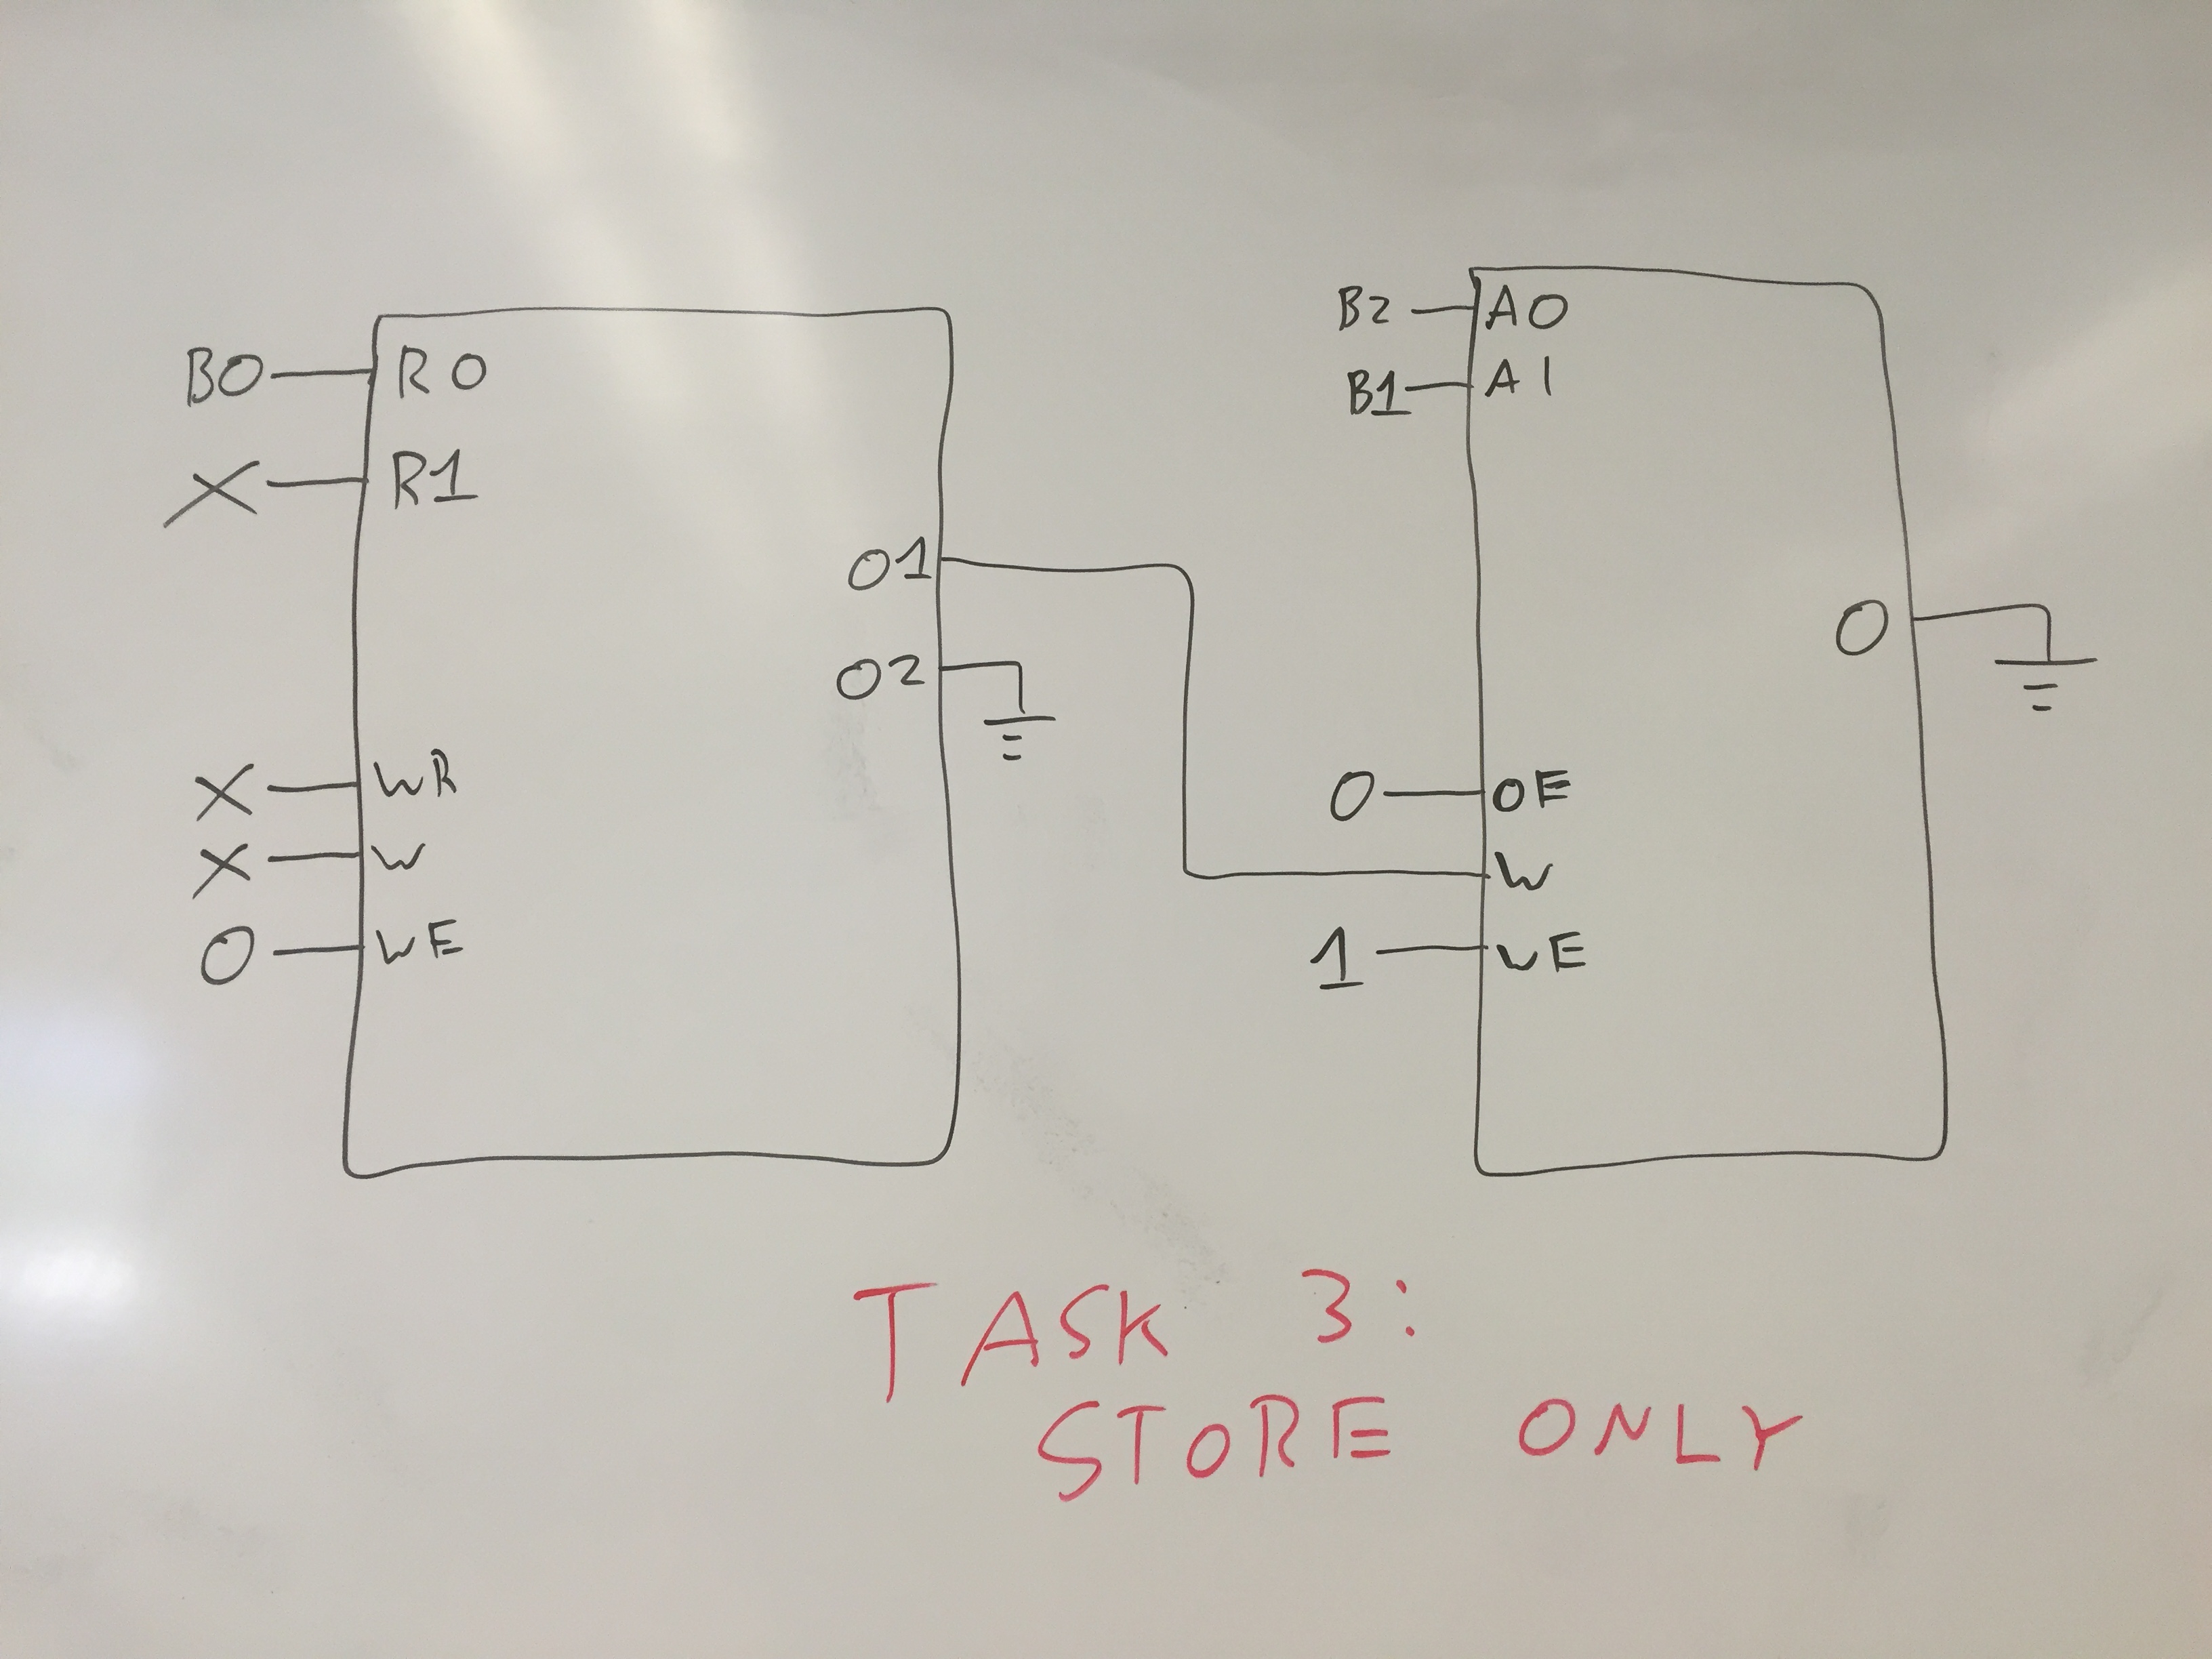 B0 R0
X R1
O1
O2
X WR
X W
0 WE
B2 A0
B1 A1
O
0 OE
W
1 WE
TASK 3:
STORE ONLY